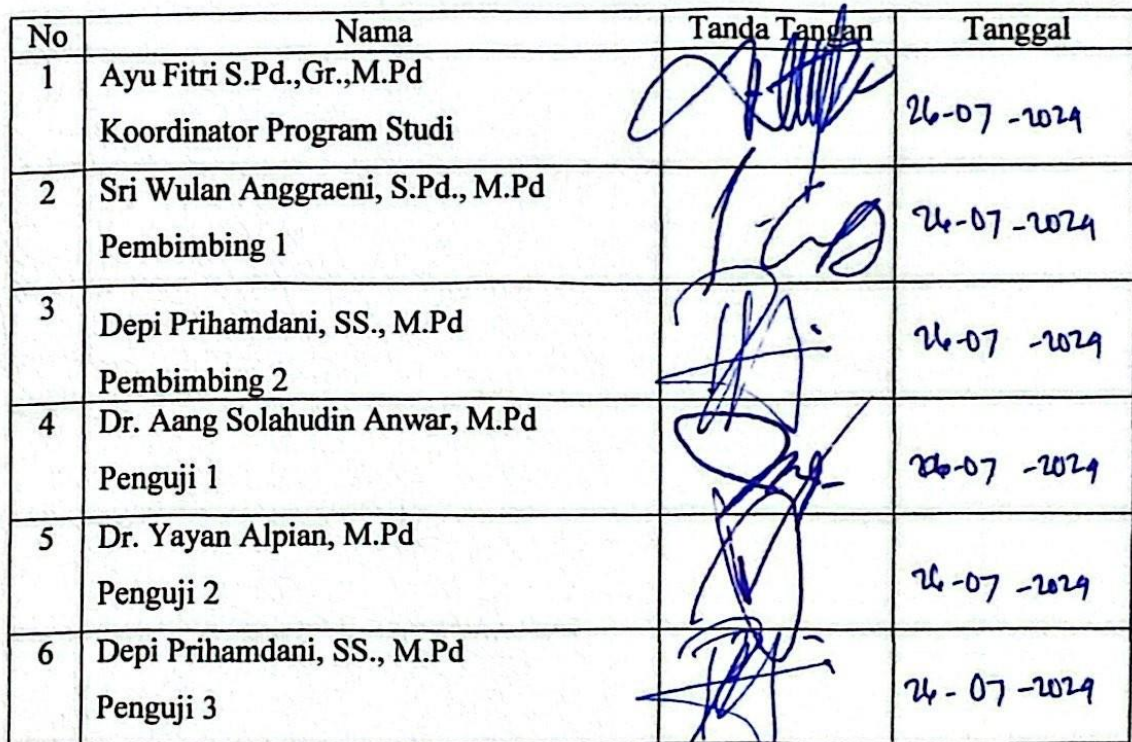 No Nama Tanda Tangan Tanggal
1 Ayu Fitri S.Pd.,Gr.,M.Pd
Koordinator Program Studi 26-07-2024
2 Sri Wulan Anggraeni, S.Pd., M.Pd
Pembimbing 1 26-07-2024
3 Depi Prihamdani, SS., M.Pd 26-07-2024
Pembimbing 2
4 Dr. Aang Solahudin Anwar, M.Pd
Penguji 1 26-07-2024
5 Dr. Yayan Alpian, M.Pd
Penguji 2 26-07-2024
6 Depi Prihamdani, SS., M.Pd
Penguji 3 26-07-2024